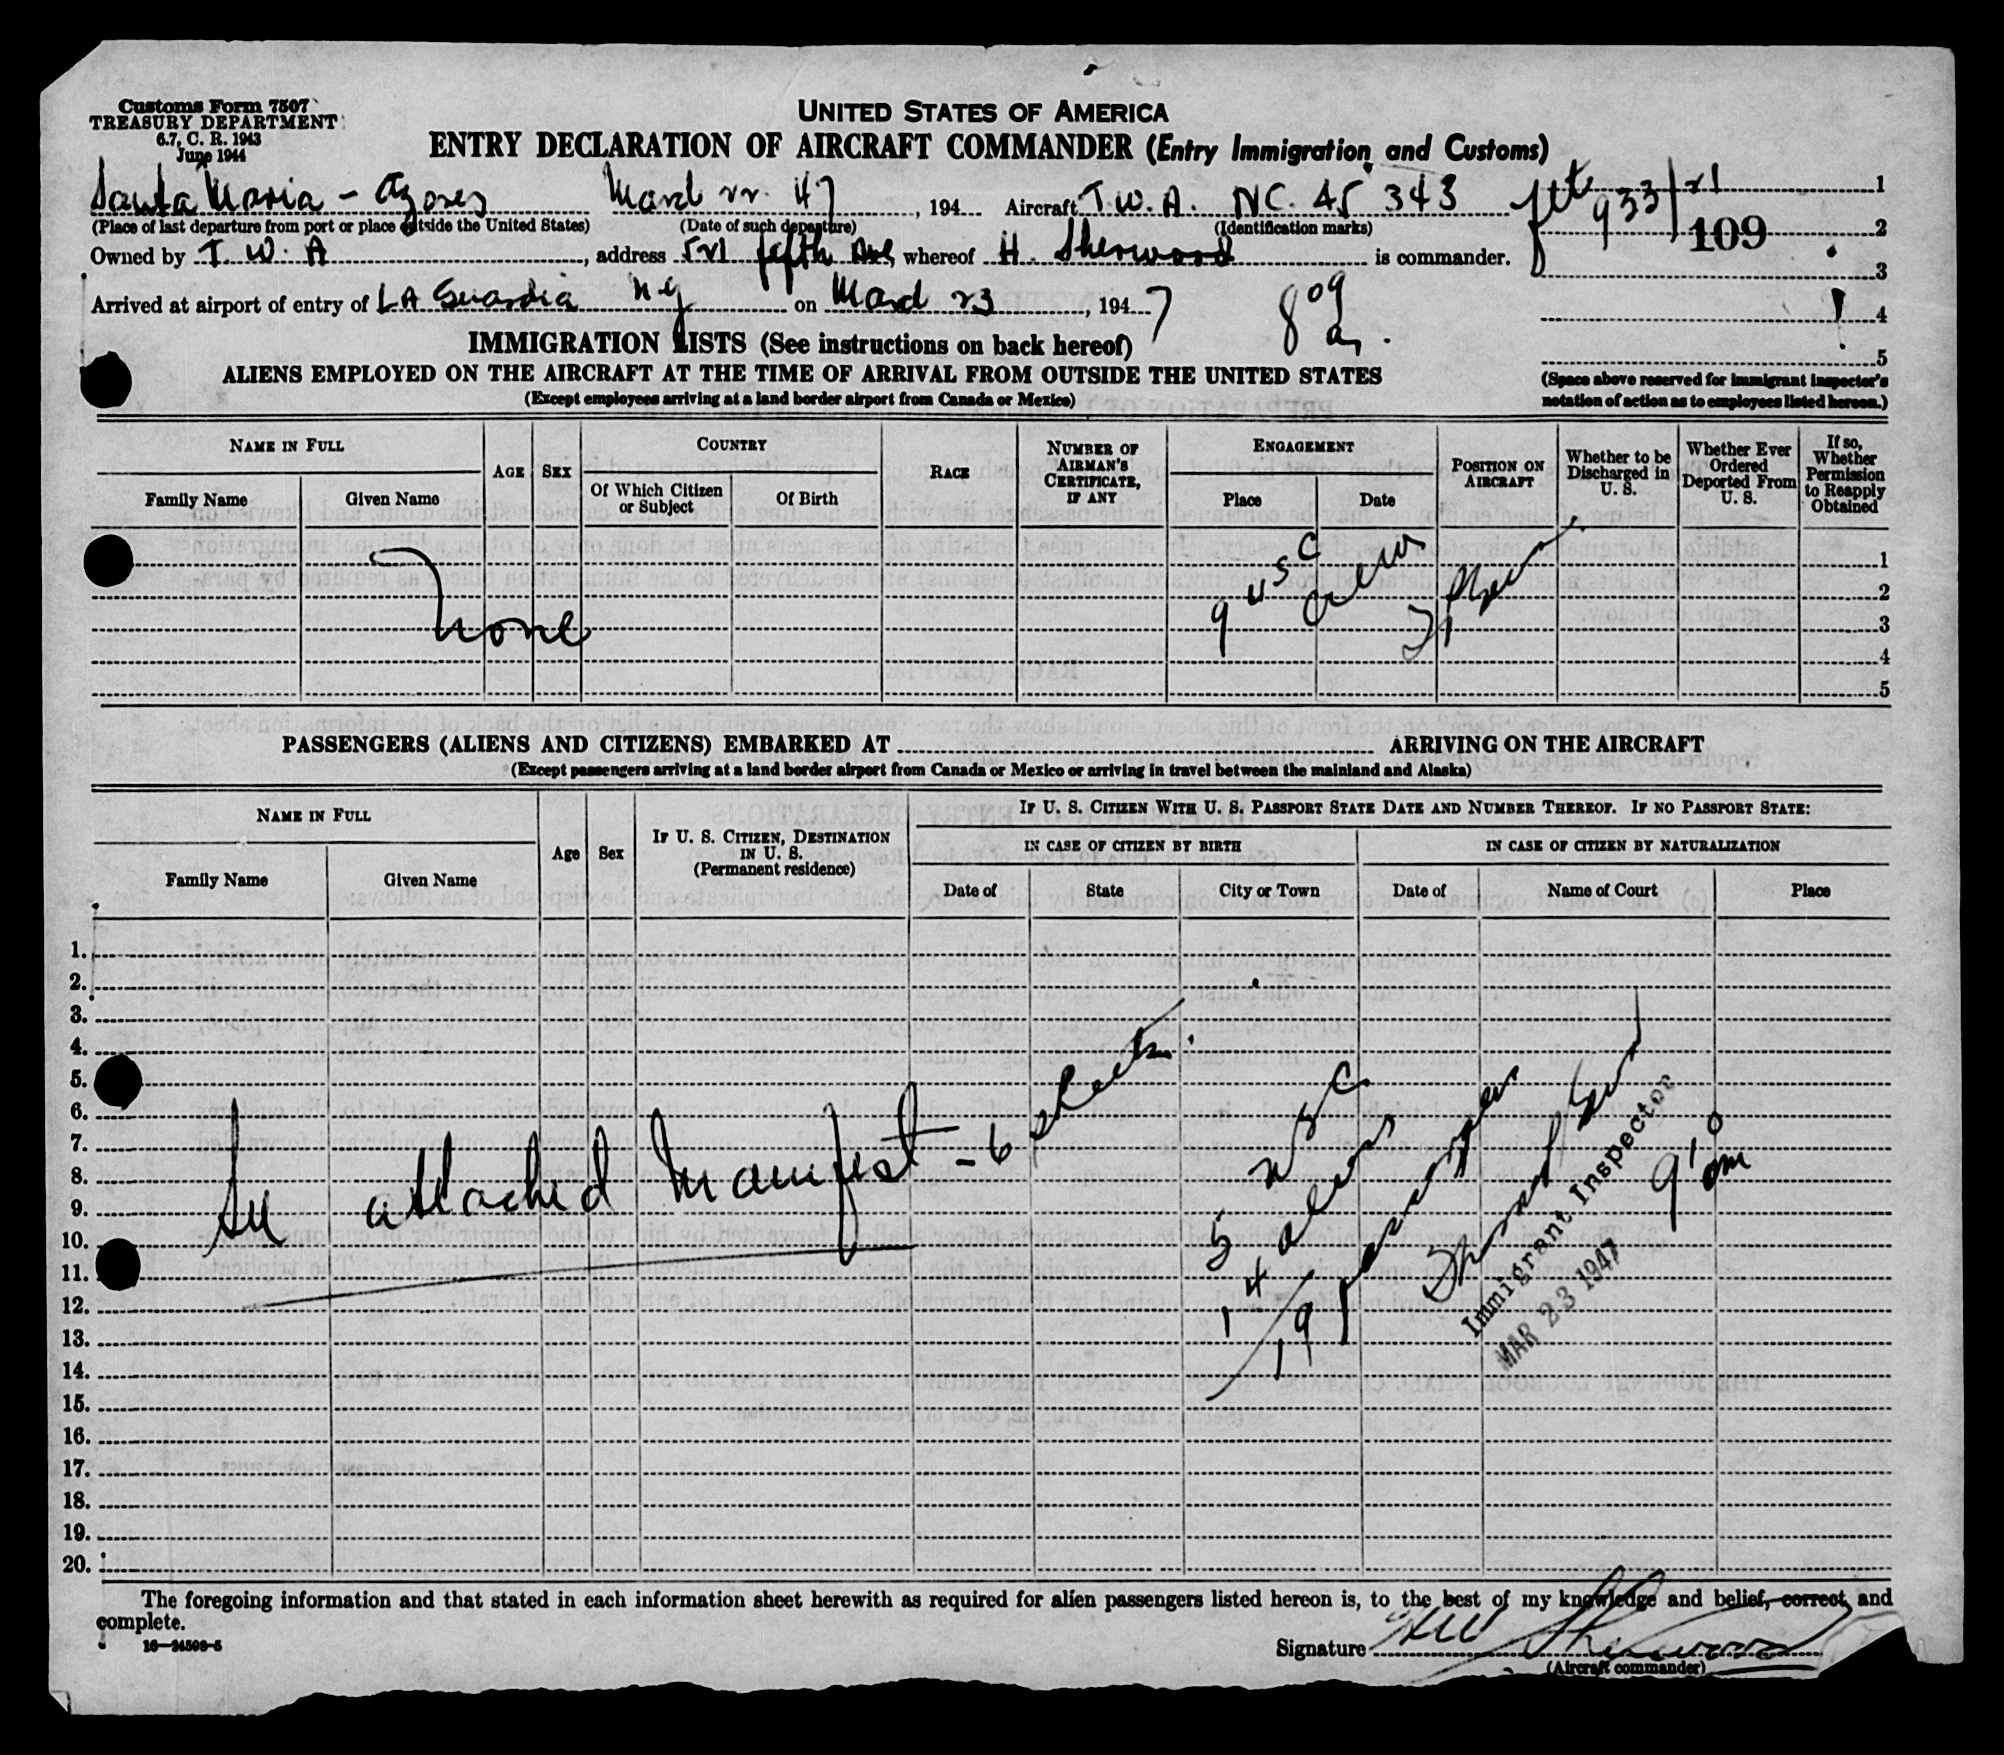 Customs Form 7507
TREASURY DEPARTMENT
6.7, C. R. 1943
June 1944
UNITED STATES OF AMERICA
ENTRY DECLARATION OF AIRCRAFT COMMANDER (Entry Immigration and Customs)
Santa Maria - Azores March 22. 47, 194 Aircraft T.W.A. NC. 45 343
(Place of last departure from port or place outside the United States) (Date of such departure) (Identification marks)
933/21 1
109 2
Owned by T. W. A, address 521 fifth Ave, whereof H. Sherwood is commander.
3
Arrived at airport of entry of LA Guardia N.Y on March 23, 1947 8 09 a
4
5
(Space above reserved for immigrant inspector's notation of action as to employees listed hereon.)
IMMIGRATION LISTS (See instructions on back hereof)
ALIENS EMPLOYED ON THE AIRCRAFT AT THE TIME OF ARRIVAL FROM OUTSIDE THE UNITED STATES
(Except employees arriving at a land border airport from Canada or Mexico)
NAME IN FULL
Family Name
Given Name
AGE
SEX
COUNTRY
Of Which Citizen or Subject
Of Birth
RACE
NUMBER OF AIRMAN'S CERTIFICATE, IF ANY
ENGAGEMENT
Place
Date
POSITION ON AIRCRAFT
Whether to be Discharged in U. S.
Whether Ever Ordered Deported From U. S.
If so, Whether Permission to Reapply Obtained
None
9 USC Crew
1
2
3
4
5
PASSENGERS (ALIENS AND CITIZENS) EMBARKED AT ARRIVING ON THE AIRCRAFT
(Except passengers arriving at a land border airport from Canada or Mexico or arriving in travel between the mainland and Alaska)
NAME IN FULL
Family Name
Given Name
Age
Sex
IF U. S. CITIZEN, DESTINATION IN U. S.
(Permanent residence)
IF U. S. CITIZEN WITH U. S. PASSPORT STATE DATE AND NUMBER THEREOF. IF NO PASSPORT STATE:
IN CASE OF CITIZEN BY BIRTH
Date of
State
City or Town
IN CASE OF CITIZEN BY NATURALIZATION
Date of
Name of Court
Place
1.
2.
3.
4.
5.
6.
7.
8.
9.
10.
11.
12.
13.
14.
15.
16.
17.
18.
19.
20.
See attached Manifest - 6 sheets.
5 USC
14 aliens
19 passengers
Immigrant Inspector
MAR 23 1947
9 10 am
The foregoing information and that stated in each information sheet herewith as required for alien passengers listed hereon is, to the best of my knowledge and belief, correct and
complete.
16—24598-5
Signature HW Sherwood
(Aircraft commander)